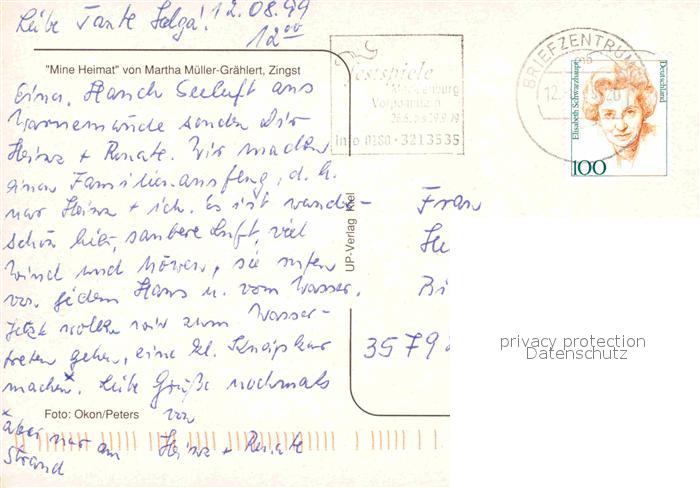 Liebe Tante Helga! 12.08.99
12⁰⁰
"Mine Heimat" von Martha Müller-Grählert, Zingst
Einen Hauch Seeluft aus
Warnemünde senden Dir
Heinz + Renate. Wir machen
einen Familienausflug, d.h.
nur Heinz + ich. Es ist wunder-
schön hier, saubere Luft, viel
Wind und Möwen, sie rufen
von jedem Haus u. vom Wasser.
Jetzt wollen wir zum Wasser-
treten gehen, eine kl. Kneippkur
machen*. Liebe Grüße nochmals
von
Heinz + Renate
*aber nur am
Strand
Foto: Okon/Peters
UP-Verlag Kiel
Festspiele
Mecklenburg
Vorpommern
Info 0180 · 3213535
BRIEFZENTRUM
12.
Elisabeth Schwarzhaupt
Deutschland
100
Frau
He
Bi
3579
privacy protection
Datenschutz